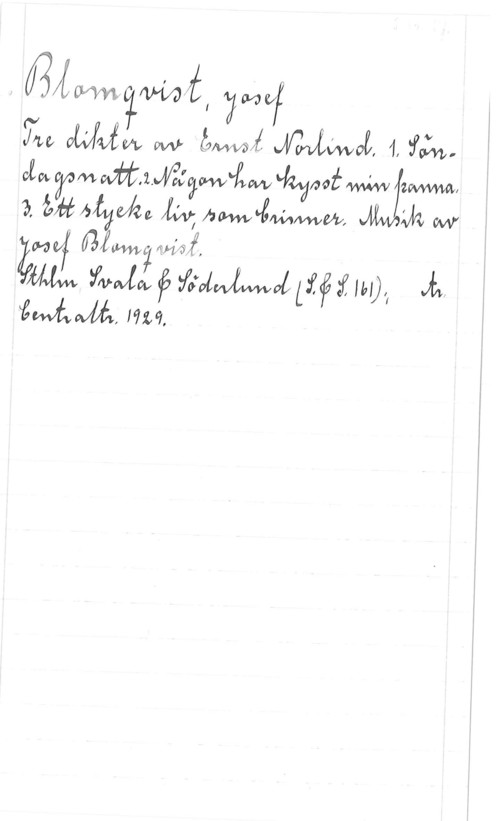 Blomqvist, Josef
Tre dikter av Ernst Norlind. 1. Sön-
dagsnatt. 2. Någon har kysst min panna.
3. Ett stycke liv, som brinner. Musik av
Josef Blomqvist.
Sthlm, Svala & Söderlund (S. & S. 161); tr.
Centraltr. 1929.